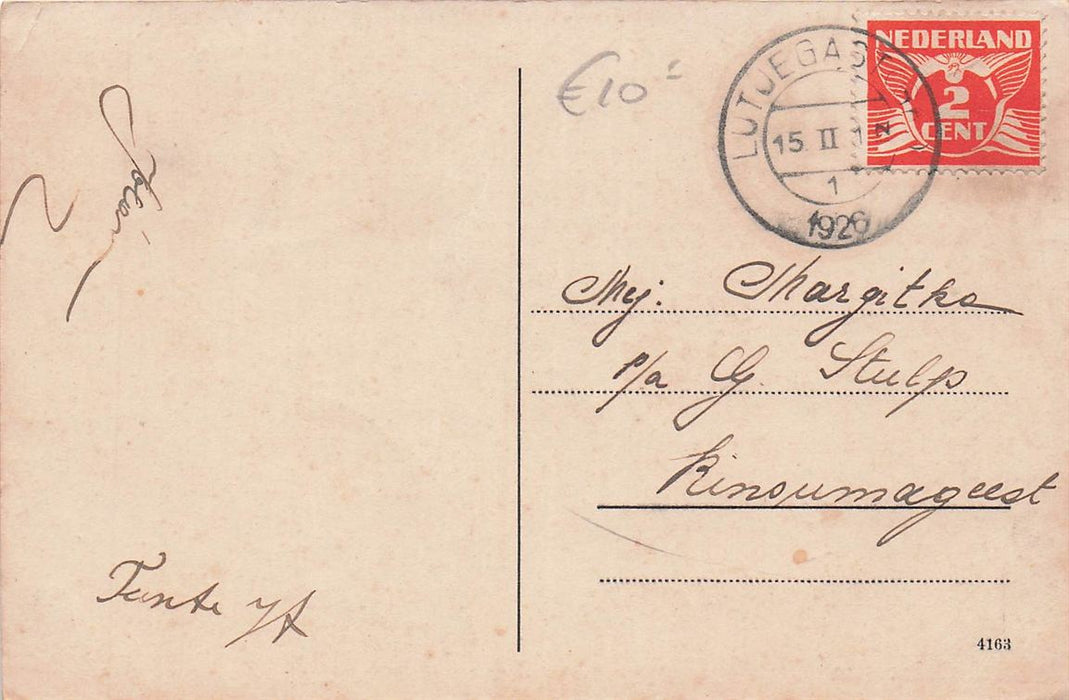 €10=
LUTJEGAST
15 II 12
1
1926
NEDERLAND
2
CENT
Mej. Margitha
p/a G. Stulp
Rinsumageest
Tante
4163